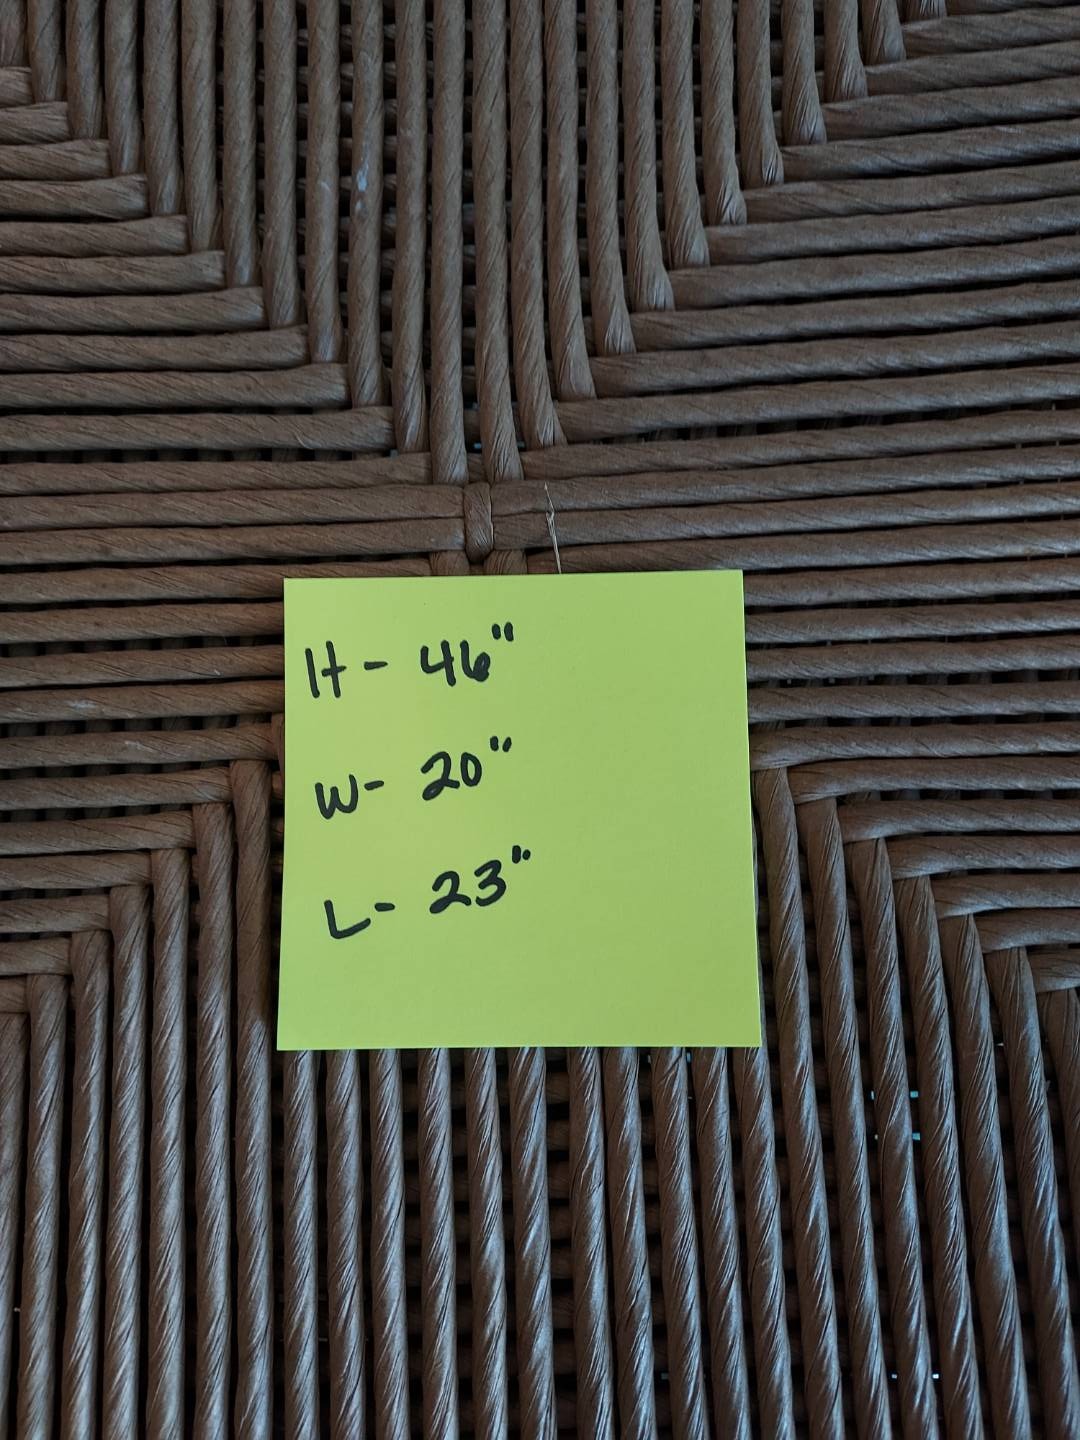 H- 46"
W- 20"
L- 23"